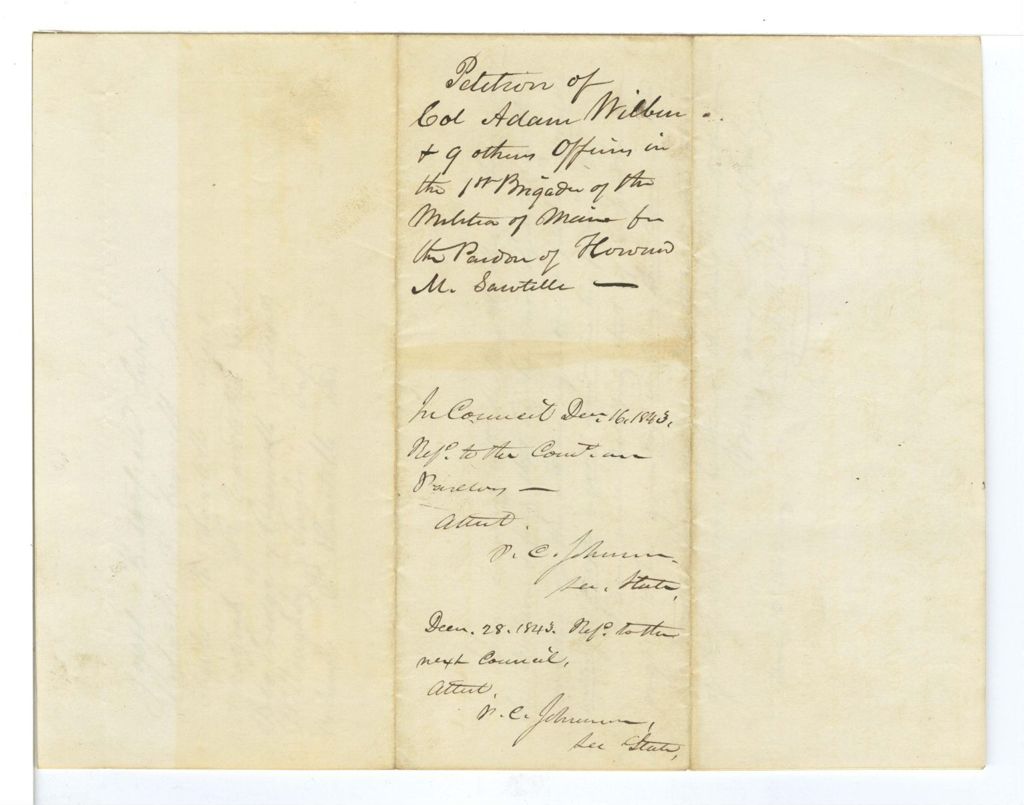 Petition of
Col Adam Wilbur
& 9 others Officers in
the 1st Brigade of the
Militia of Maine for
the Pardon of Howard
M. Sawtelle —
In Council Dec. 16, 1843.
Refd. to the Comt. on
Pardons —
Attest.
P. C. Johnson
Sec. State,
Decem. 28. 1843. Refd. to the
next Council,
Attest,
P. C. Johnson,
Sec State,